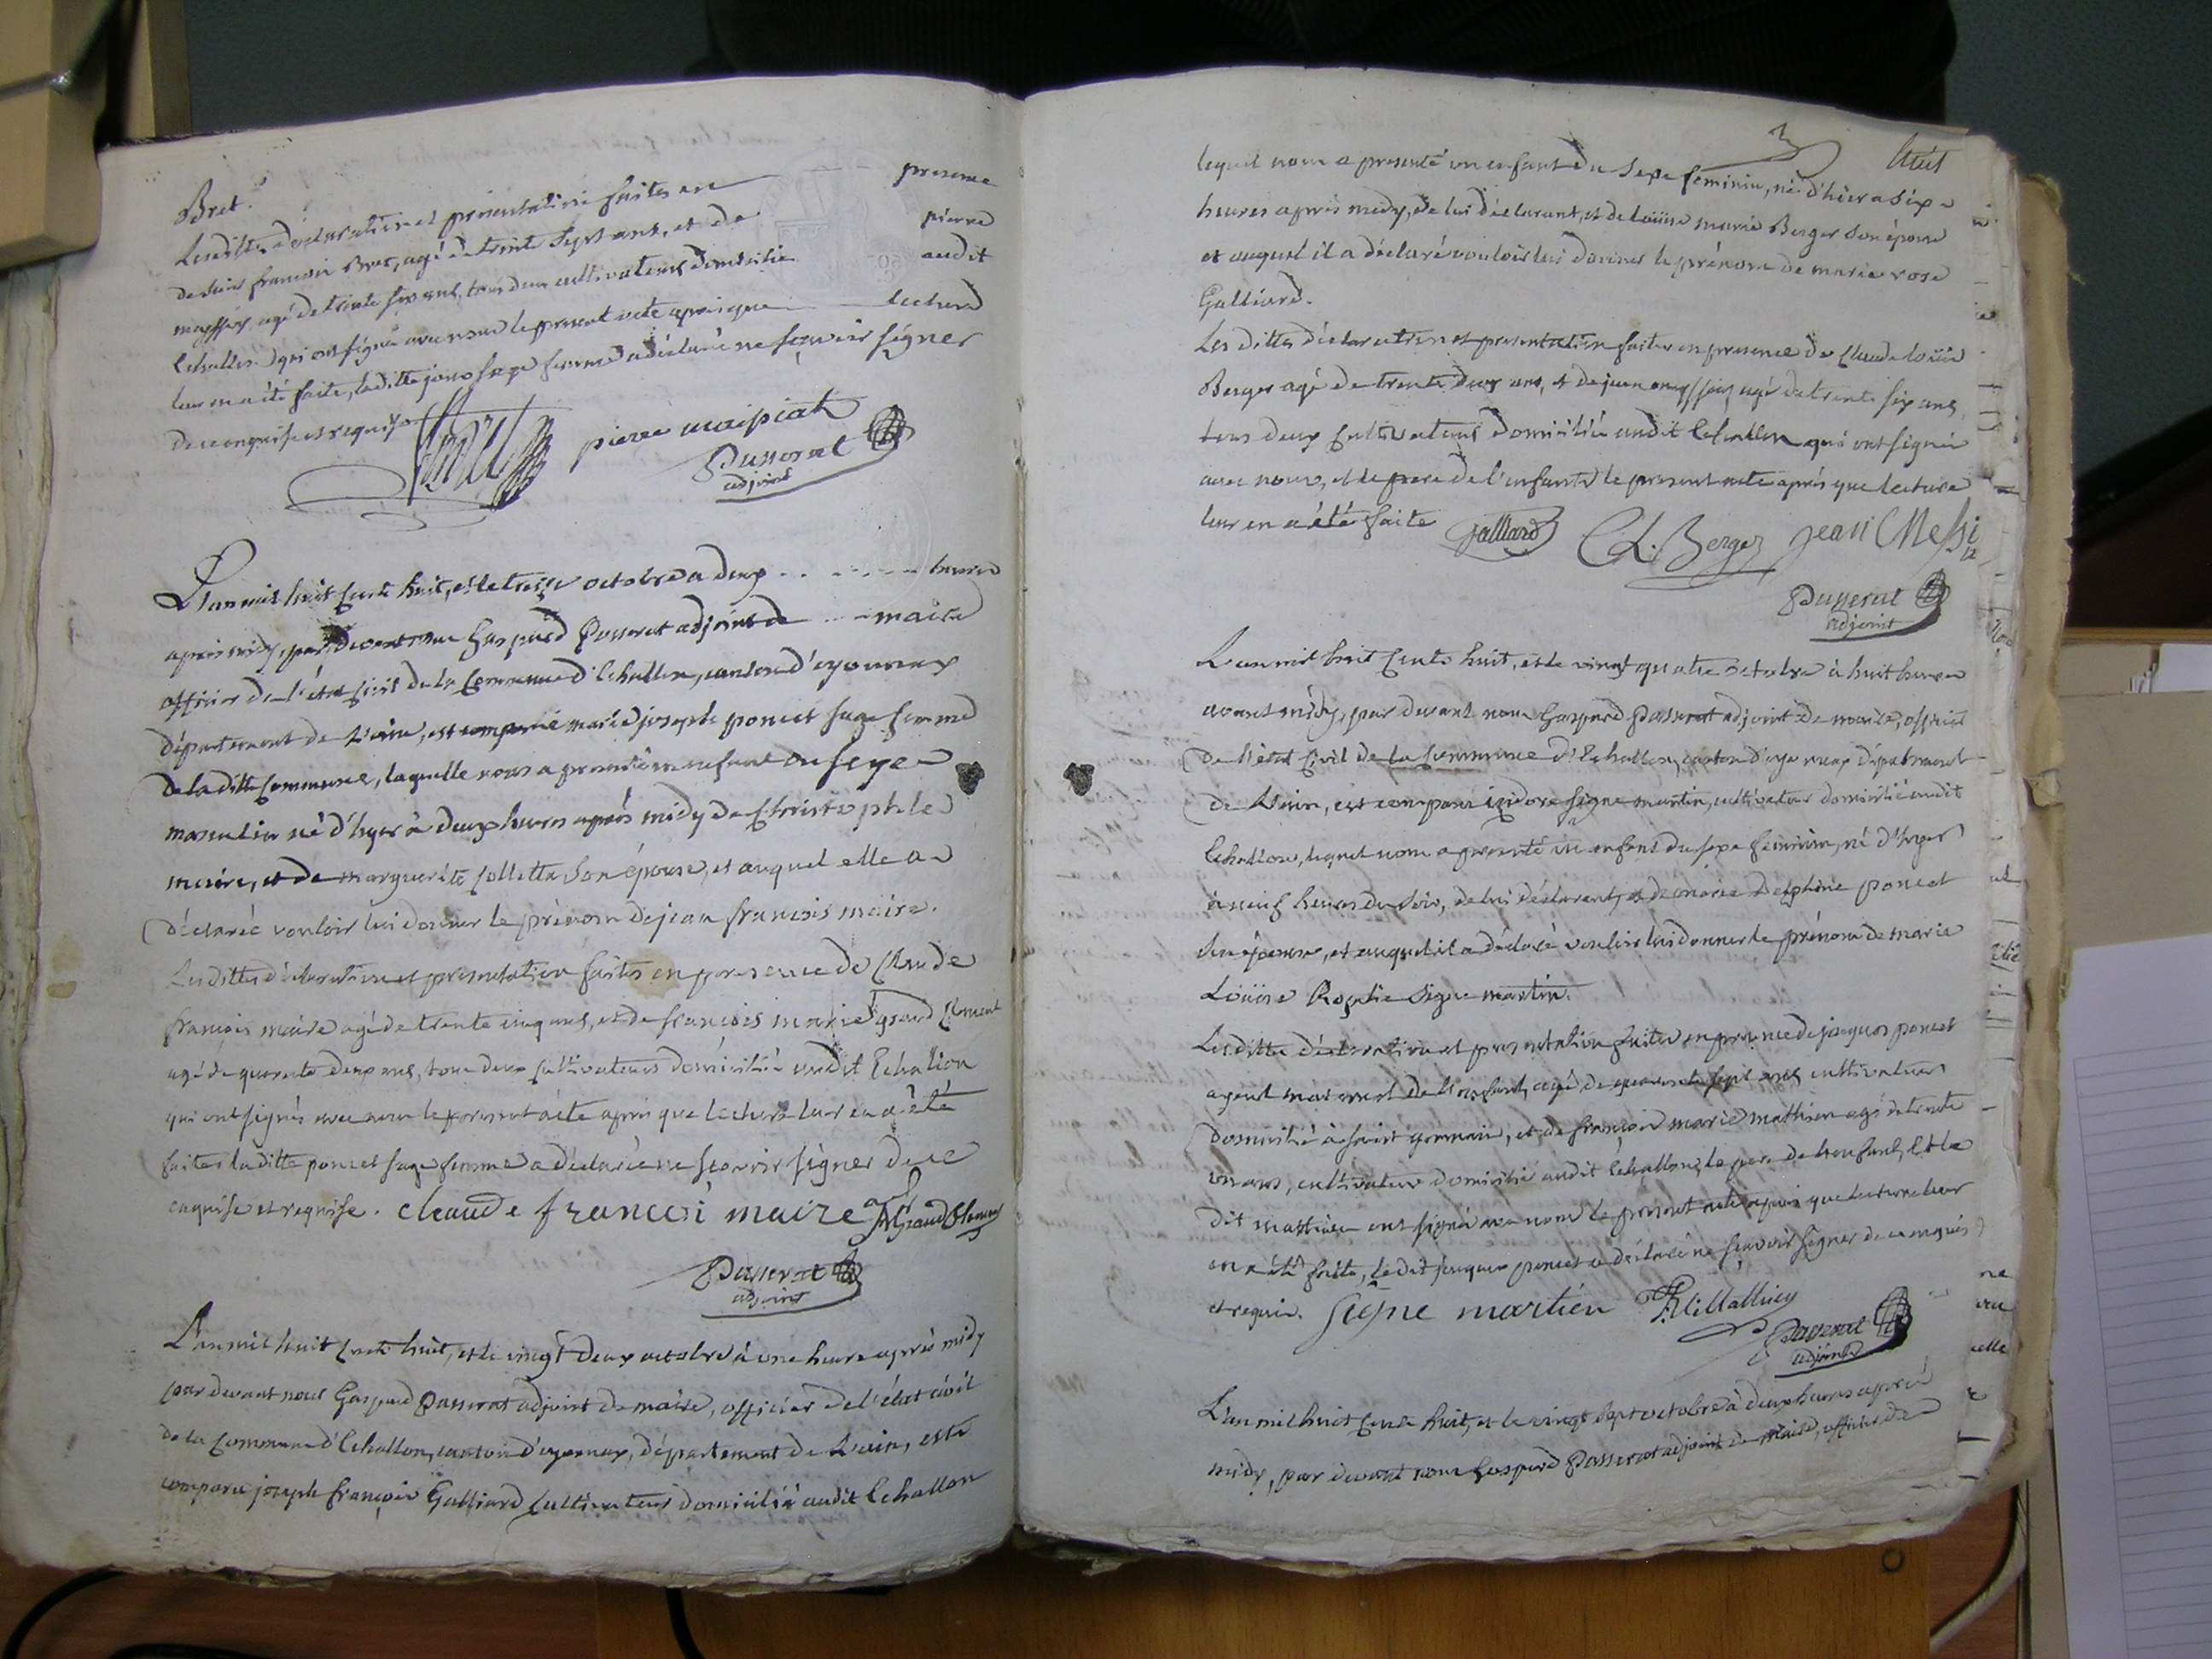 Bret.
Lesdittes déclaration et présentation faites en presence
de Louis francois Bret, agé de trente sept ans, et de pierre
agé de trente six ans, tous deux cultivateurs domicilié audit
Echallon qui ont signé avec nous le present acte apres que lecture
leur en a été faite, laditte sage femme a déclaré ne sçavoir signer
de ce enquise et requise
pierre
Passerat
adjoint
L'an mil huit cents huit, et le treize octobre a deux heures
apres midy, par devant nous Gaspard Passerat adjoint de maire
officier de l'état civil de la Commune d'Echallon, canton d'oyonnax
département de L'ain, est comparue marie josephe poncet sage femme
de la ditte Commune, laquelle nous a presenté un enfant du sexe
masculin né d'hyer à deux heures après midy de Christophe le
maire, et de marguerite Colletta son épouse, et auquel elle a
déclaréé vouloir lui donner le prénom de jean francois maire.
Lesdittes déclaration et presentation faites en presence de Claude
françois maire agé de trente cinq ans, et de francois marie grand Clement
agé de quarente deux ans, tous deux cultivateurs domicilié audit Echallon
qui ont signés avec nous le present acte apres que lecture leur en a été
faite, laditte poncet sage femme a déclarée ne sçavoir signer de ce
enquise et requise. claude francoi maire fM Grand Clement
Passerat
adjoint
L'an mil huit cents huit, et le vingt deux octobre à une heure après midy
par devant nous Gaspard Passerat adjoint de maire, officier de l'état civil
de la Commune d'Echallon, canton d'oyonnax, département de L'ain, est
comparu joseph françois Galliard cultivateur domicilié audit Echallon
huit
lequel nous a presenté un enfant du sexe féminin, né d'hier a six
heures après midy, de lui déclarant, et de Loüise marie Berger son épouse
et auquel il a déclaré vouloir lui donner le prénom de marie rose
Galliard.
Les dittes déclaration et presentation faites en presence de Claude loüis
Berger agé de trente deux ans, et de jean agé de trente six ans,
tous deux Cultivateurs domicilié audit Echallon qui ont signés
avec nous, et le pere de l'enfant le present acte après que lecture
leur en a été faite Galliard CL. Berger jean Messi
Passerat
adjoint
L'an mil huit cents huit, et le vingt quatre octobre à huit heures
avant midy, par devant nous Gaspard Passerat adjoint de maire, officier
de l'état Civil de la Commune d'Echallon, canton d'oyonnax département
de L'ain, est comparu izidore signe martin, cultivateur domicilié audit
Echallon, lequel nous a presenté un enfant du sexe féminin, né d'hyer
à neuf heures du soir, de lui déclarant, et de marie delphine poncet
son épouse, et auquel il a déclaré vouloir lui donner le prénom de marie
Loüise Rosalie signe martin.
Lesdittes déclaration et presentation faites en presence de jacques poncet
ayeul maternel de l'enfant, agé de quarente sept ans cultivateur
domicilié à saint germain, et de françois marie mathieu agé de trente
un ans, cultivateur domicilié audit Echallon, le pere de l'enfant, et le
dit mathieu ont signé avec nous le present acte après que lecture leur
en a été faite, ledit jacques poncet a déclaré ne sçavoir signer de ce enquis
et requis. signe martien
Passerat
adjoint
L'an mil huit cents huit, et le vingt sept octobre à deux heures après
midy, par devant nous Gaspard Passerat adjoint de maire, officier de